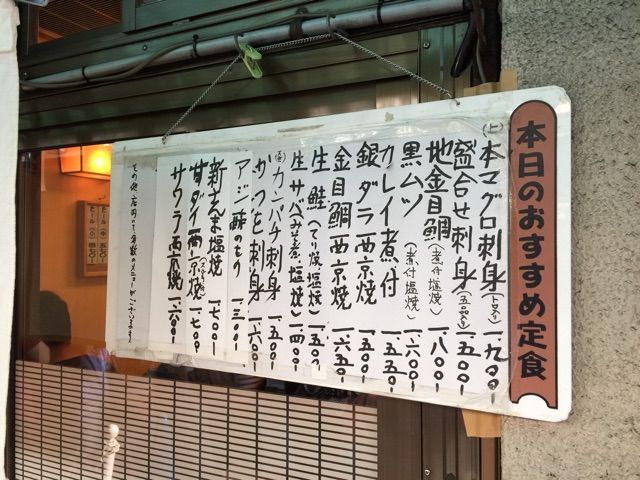 本日のおすすめ定食
(上)本マグロ刺身(トロ入り)一、九〇〇-
盛合せ刺身(五点盛り)一、五〇〇-
地金目鯛(煮付 塩焼)一、八〇〇-
黒ムツ(煮付 塩焼)一、六〇〇-
カレイ煮付 一、五五〇-
銀ダラ西京焼 一、六〇〇-
金目鯛西京焼 一、六五〇-
生鮭(てり焼 塩焼)一、五〇〇-
生サバ(みそ煮・塩焼)一、四〇〇-
カンパチ刺身 一、五〇〇-
かつを刺身 一、六〇〇-
アジ酢のもの 一、三〇〇-
新さんま塩焼 一、七〇〇-
甘ダイ西京焼 一、七〇〇-
サワラ西京焼 一、六〇〇-
その他、店内にて多数のメニューがございます
ビール(中)
ビール(小)